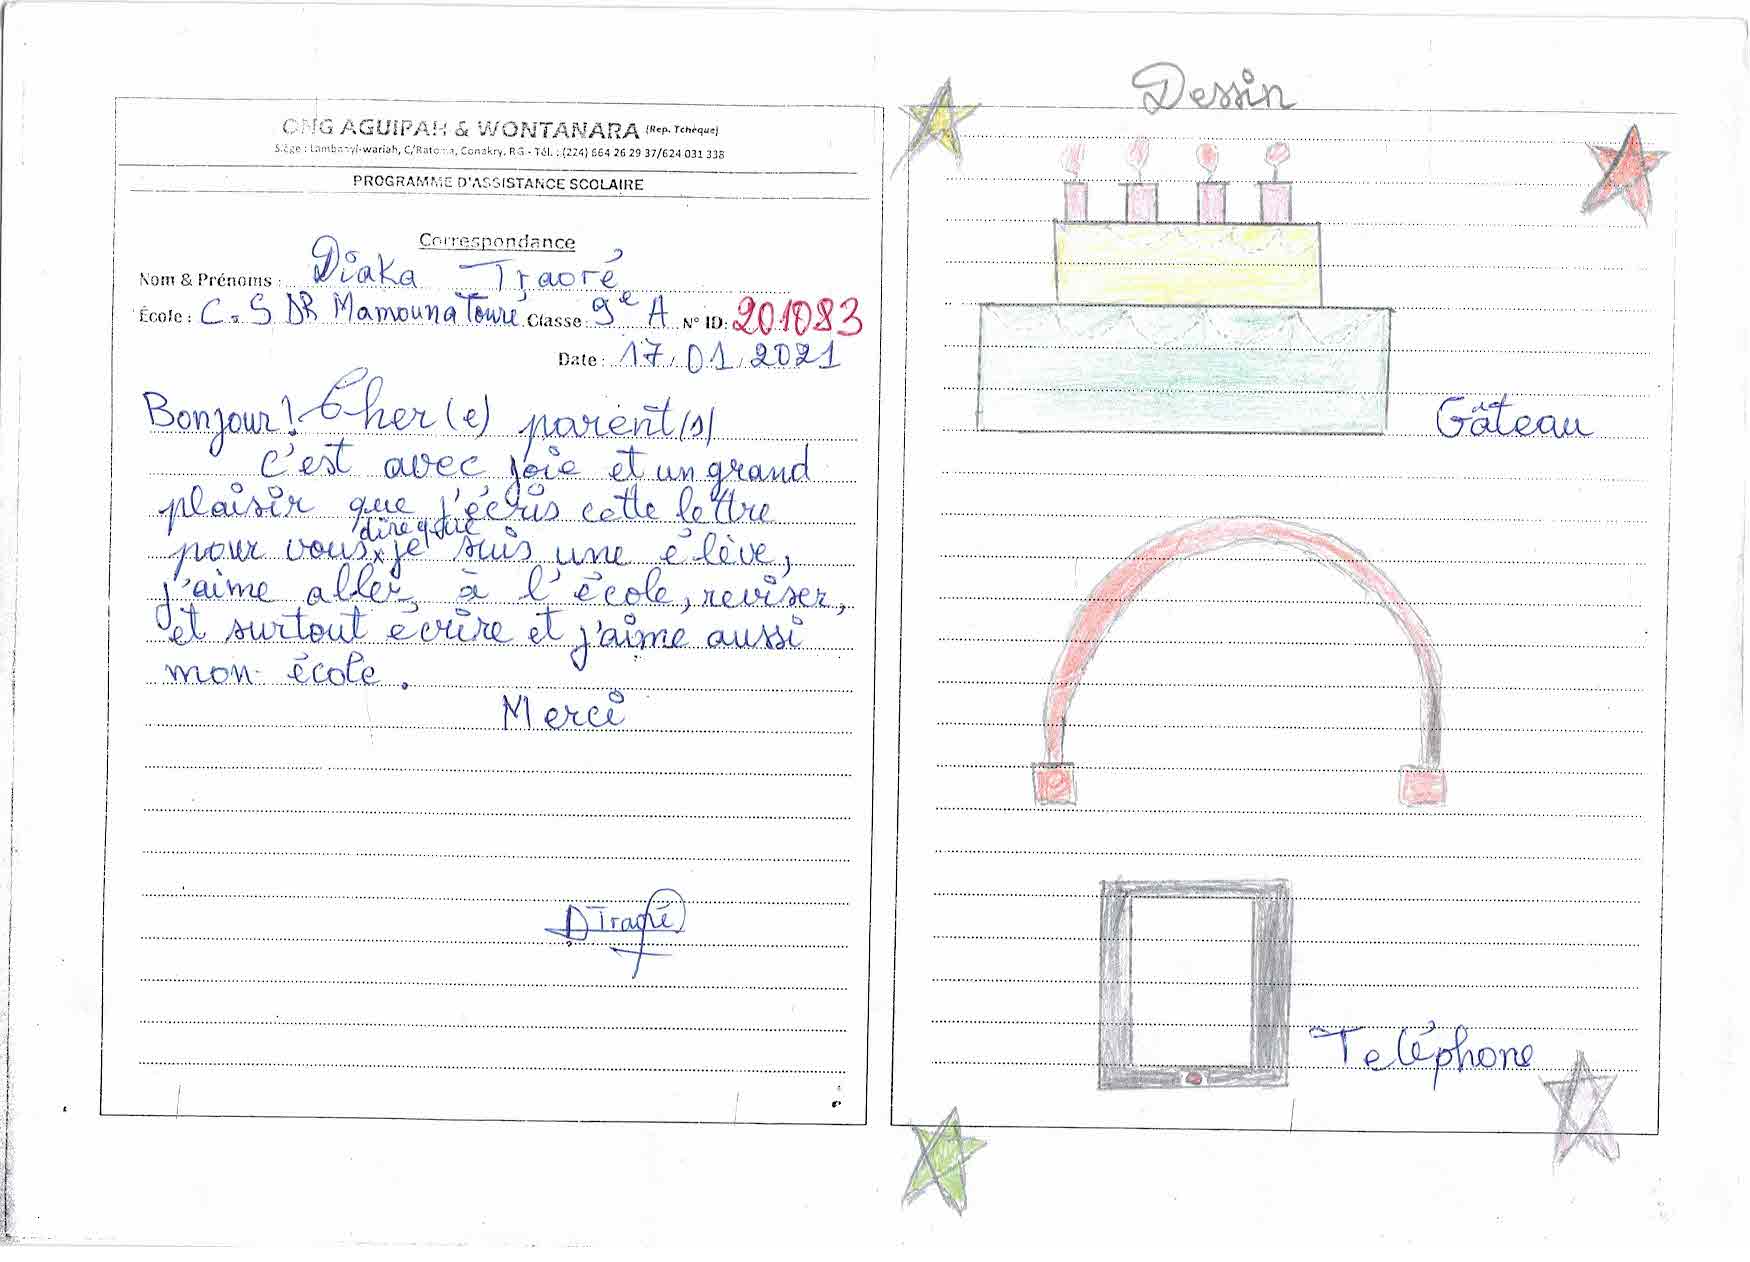 ONG AGUIPAH & WONTANARA (Rep. Tchèque)
Siège : Lambanyi-wariah, C/Ratoma, Conakry, RG - Tél. : (224) 664 26 29 37/624 031 338
PROGRAMME D'ASSISTANCE SCOLAIRE
Correspondance
Nom & Prénoms : Diaka Traoré
École : C.S DR Mamouna Touré Classe : 9e A N° ID: 201083
Date : 17/01/2021
Bonjour! Cher(e) parent(s)
c'est avec joie et un grand
plaisir que j'écris cette lettre
dire que
pour vous je suis une élève,
j'aime aller, à l'école, reviser,
et surtout écrire et j'aime aussi
mon école.
Merci
DTraoré
Dessin
Gâteau
Teléphone